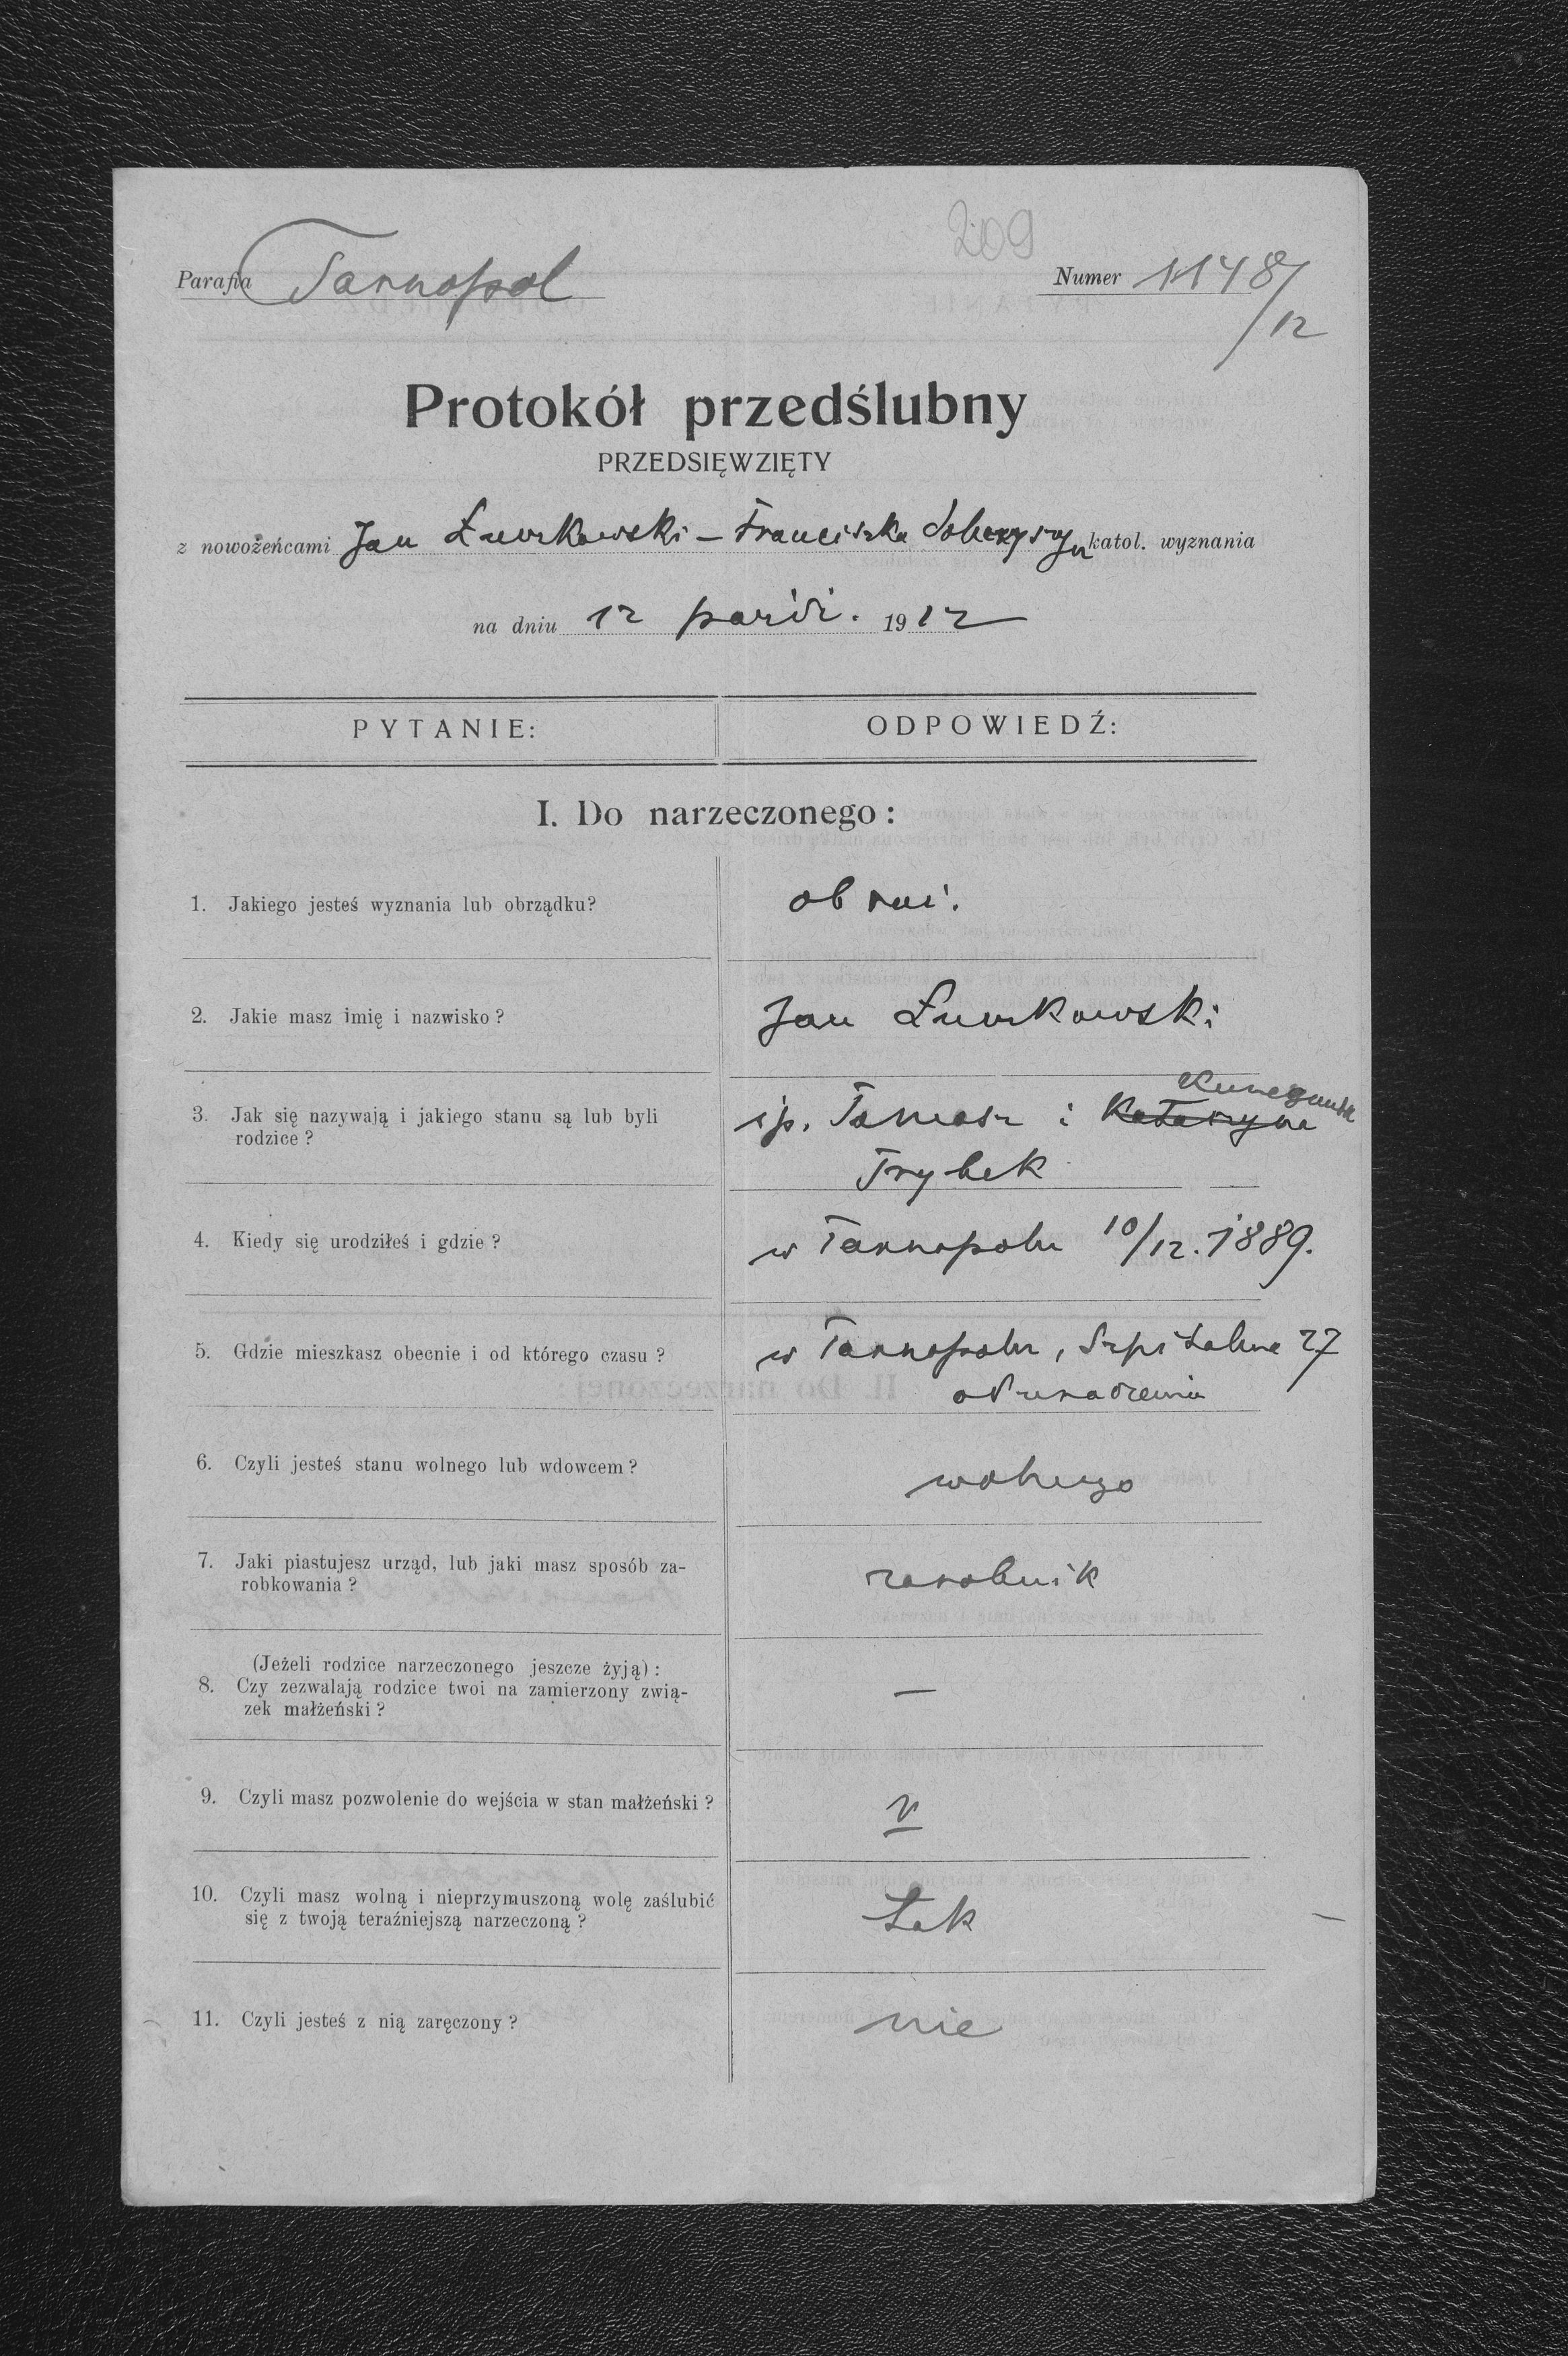 209
Parafia Tarnopol Numer 1148/12
Protokół przedślubny
PRZEDSIĘWZIĘTY
z nowożeńcami Jan Żurkowski – Franciszka katol. wyznania
na dniu 12 paźdź. 1912
PYTANIE: ODPOWIEDŹ:
I. Do narzeczonego:
1. Jakiego jesteś wyznania lub obrządku? ob
2. Jakie masz imię i nazwisko? Jan Żurkowski
Kunegunda
3. Jak się nazywają i jakiego stanu są lub byli śp. Tomasz i Katarzyna
rodzice? Trybek
4. Kiedy się urodziłeś i gdzie? w Tarnopolu 10/12. 1889.
5. Gdzie mieszkasz obecnie i od którego czasu? w Tarnopolu, Szpitalna 27
od urodzenia
6. Czyli jesteś stanu wolnego lub wdowcem? wolnego
7. Jaki piastujesz urząd, lub jaki masz sposób za- zarobnik
robkowania?
(Jeżeli rodzice narzeczonego jeszcze żyją):
8. Czy zezwalają rodzice twoi na zamierzony zwią- –
zek małżeński?
9. Czyli masz pozwolenie do wejścia w stan małżeński?
10. Czyli masz wolną i nieprzymuszoną wolę zaślubić tak
się z twoją teraźniejszą narzeczoną?
11. Czyli jesteś z nią zaręczony? nie